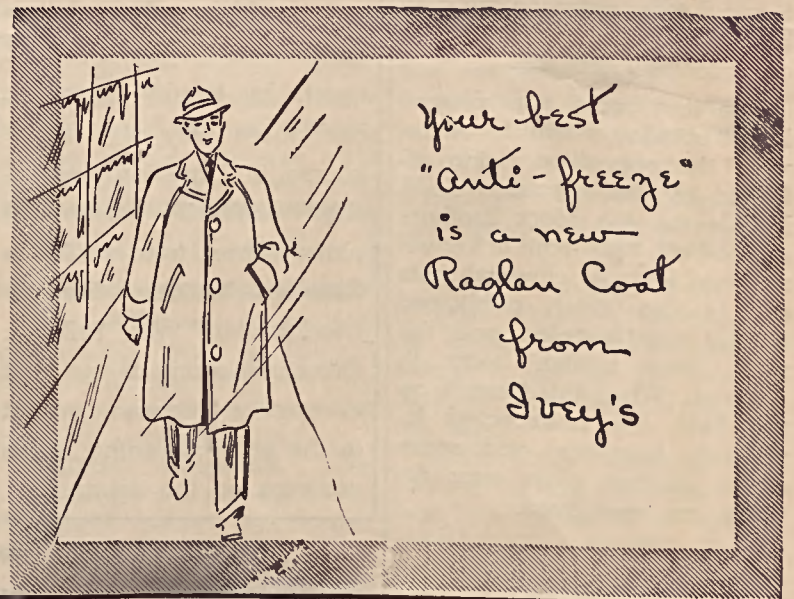 Your best
"anti-freeze"
is a new
Raglan Coat
from
Ivey's